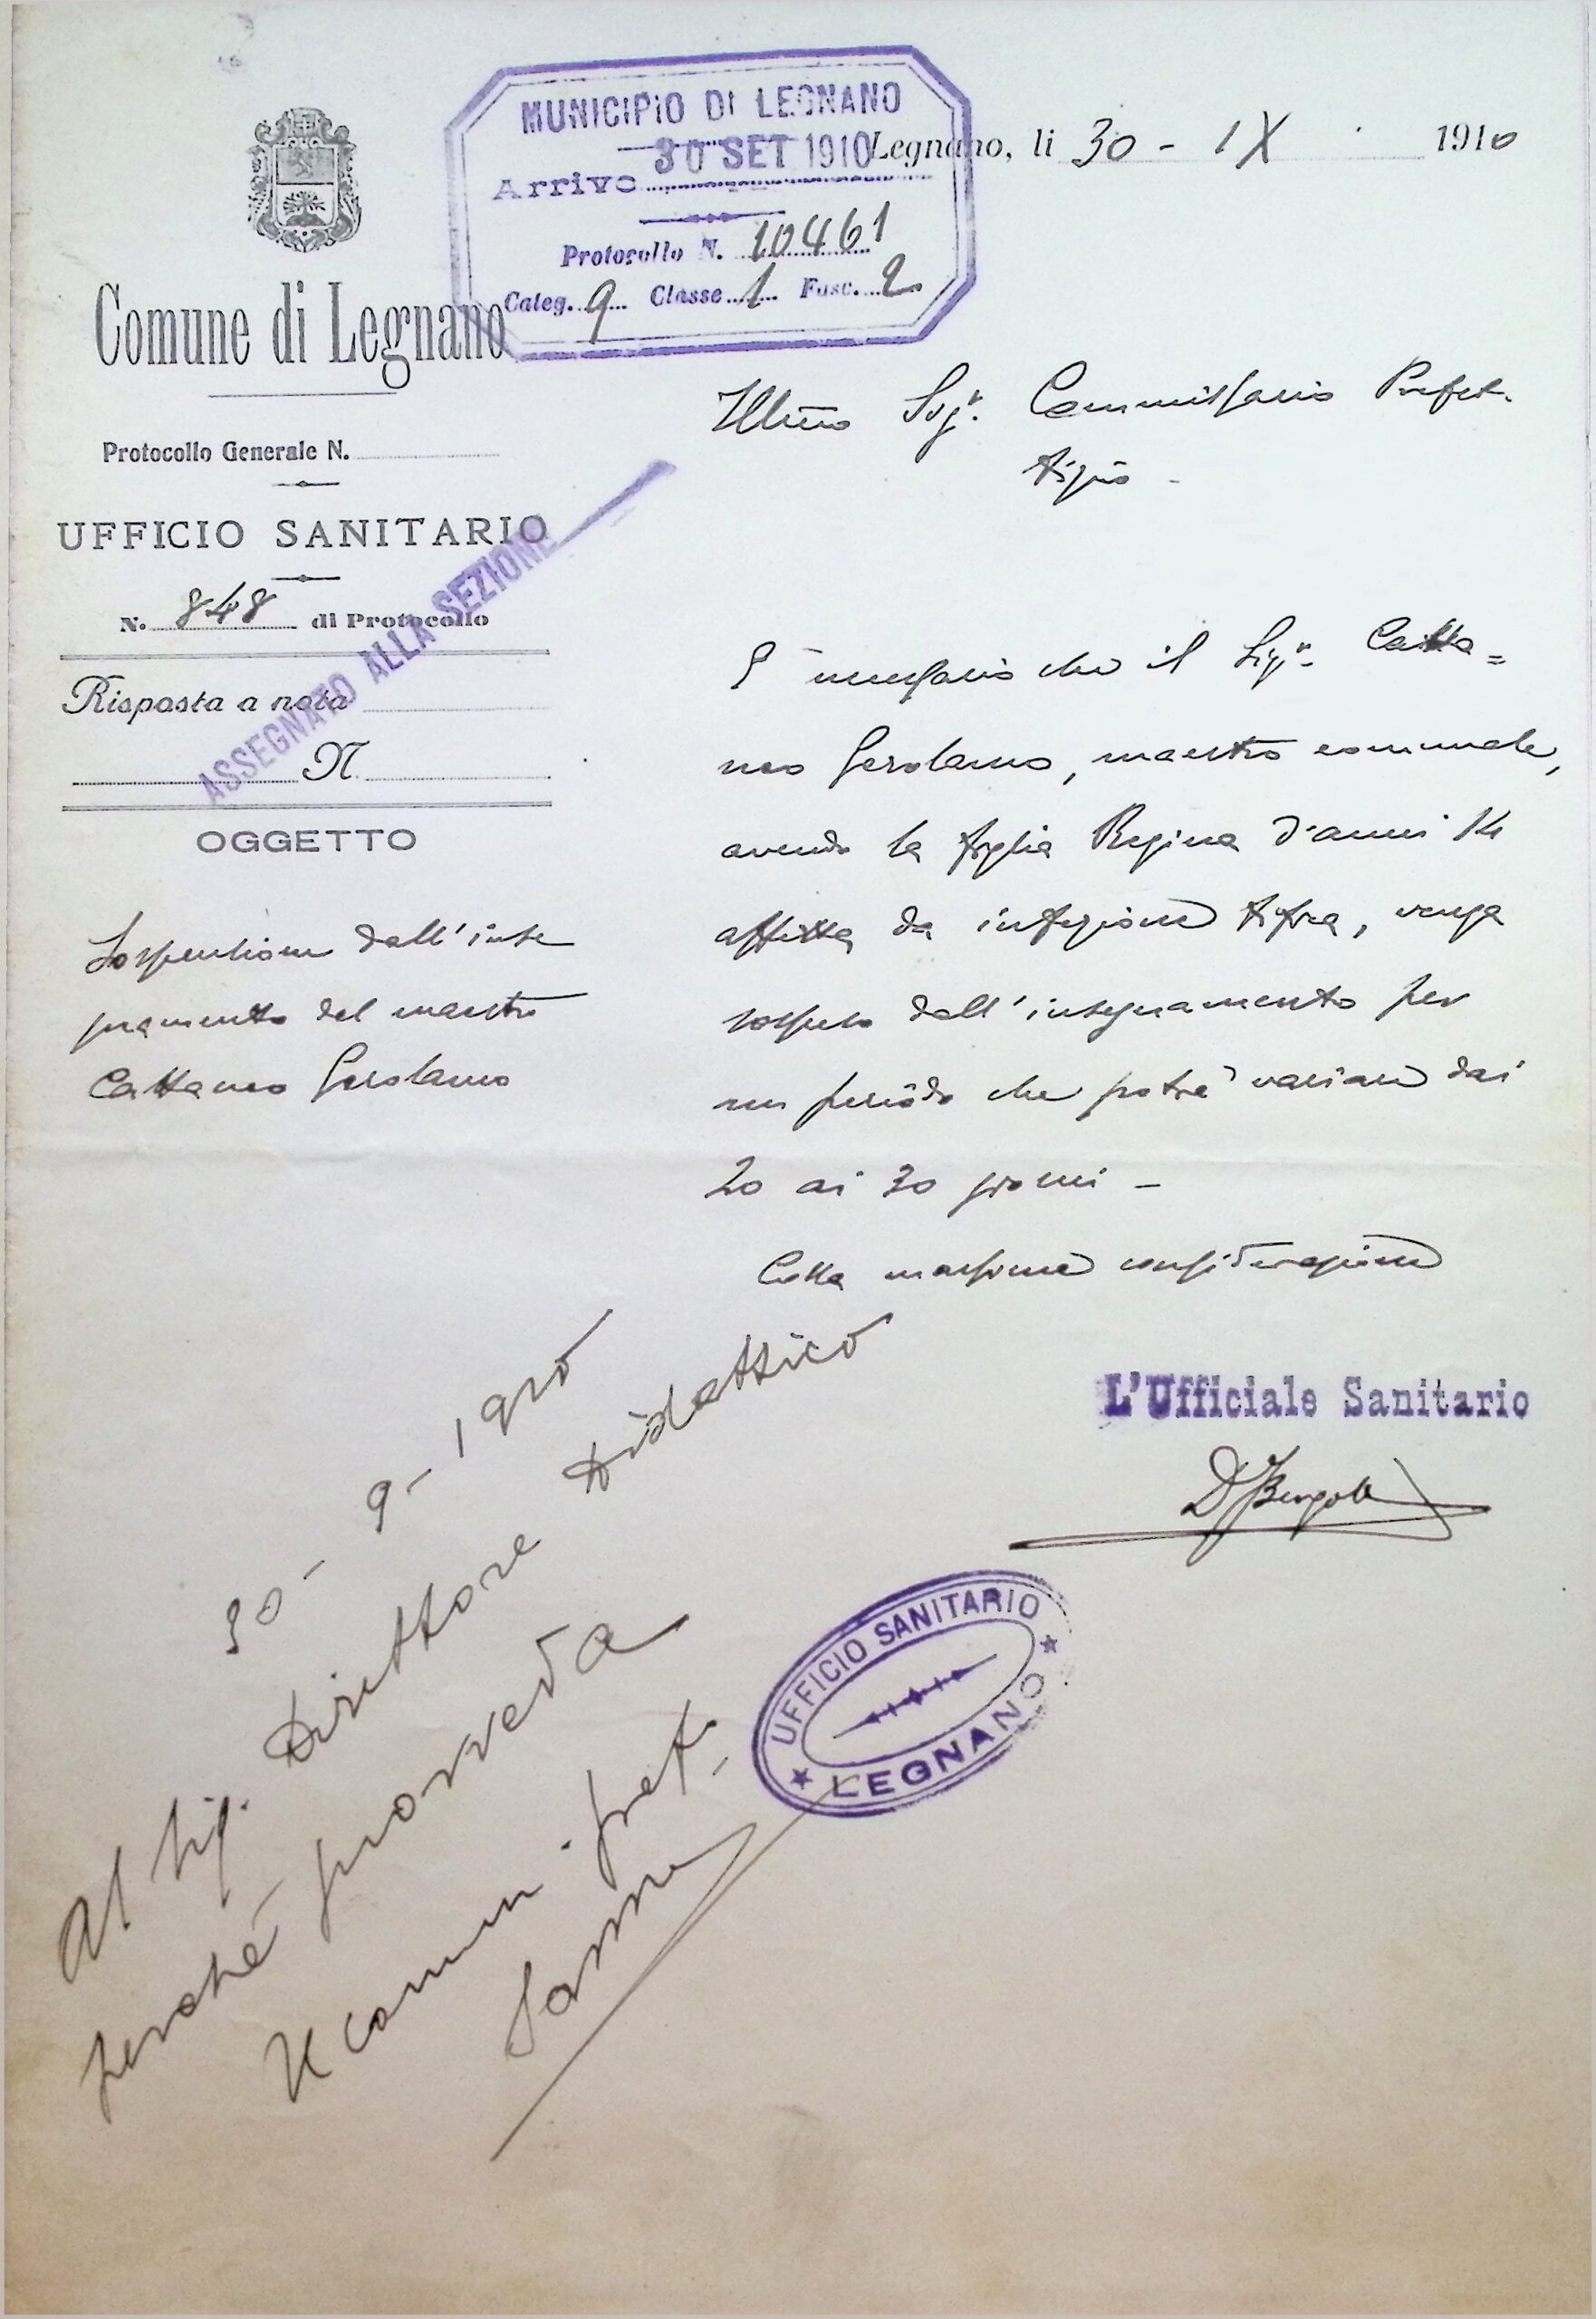 MUNICIPIO DI LEGNANO
30 SET 1910
Arrivo
Protocollo N. 10461
Categ. 9 Classe 1 Fasc. 2
Legnano, li 30 - IX 1910
Comune di Legnano
Protocollo Generale N.
UFFICIO SANITARIO
N. 848 di Protocollo
ASSEGNATO ALLA SEZIONE
Risposta a nota
N.
OGGETTO
Sospensione dall'inse
gnamento del maestro
Cattaneo Gerolamo
Illmo Sigr. Commissario Prefet.
tizio -
È necessario che il Sigr. Catta=
neo Gerolamo, maestro comunale,
avendo la figlia Regina d'anni 14
affetta da infezione tifica, venga
sospeso dall'insegnamento per
un periodo che potrà variare dai
20 ai 30 giorni -
Colla massima considerazione
L'Ufficiale Sanitario
UFFICIO SANITARIO
LEGNANO
30 - 9 - 1910
Al Sig. Direttore Didattico
perché provveda
Il Comm. pref.